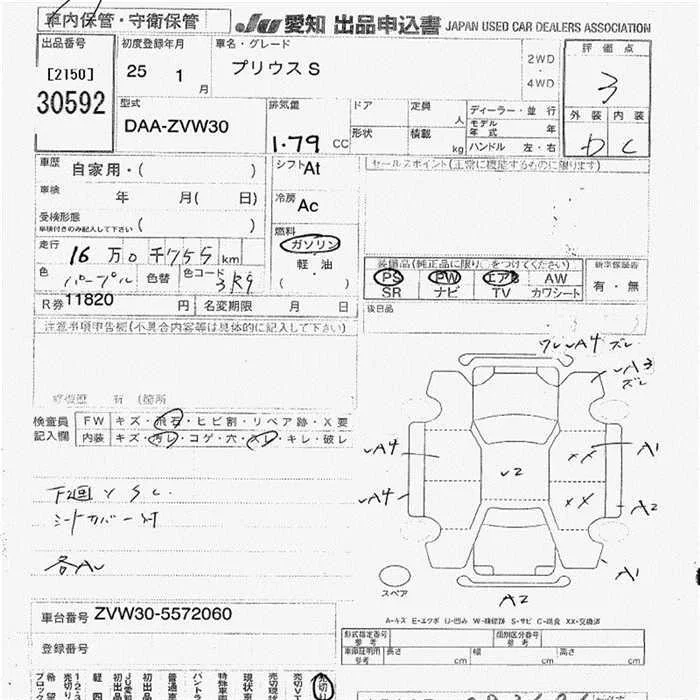 車内保管・守衛保管
JU 愛知 出品申込書 JAPAN USED CAR DEALERS ASSOCIATION
出品番号
[2150]
30592
初度登録年月
25 1 月
車名・グレード
プリウス S
2WD
・
4WD
評価点
3
外装 内装
D C
型式
DAA-ZVW30
排気量
1.79 CC
ドア
定員 人
形状
積載 kg
ディーラー・並行
モデル年式 年
ハンドル 左・右
車歴
自家用・( )
車検 年 月( 日)
受検形態
車検付きのみ記入して下さい ( )
走行 16 万 0 千755 km
色 パープル 色替 色コード 3R9
R券 11820 円 名変期限 月 日
シフト At
冷房 Ac
燃料
ガソリン
軽・油
( )
セールスポイント(正常に機能するものに限ります)
装備品(純正品に限り○をつけてください)
PS PW エアB AW
SR ナビ TV カワシート
新車保証書
有・無
後日品
注意事項申告欄(不具合内容等は具体的に記入して下さい)
修復歴 有 (箇所
検査員記入欄
FW キズ・飛石・ヒビ割・リペア跡・X要
内装 キズ・汚レ・コゲ・穴・スレ・キレ・破レ
シートカバー付
A4 ズレ
A3
ズレ
A4
A1
2
XX
A4
XX
A2
A1
A2
スペア
A-キズ E-エクボ U-凹み W-補修跡 S-サビ C-腐食 XX-交換済
車台番号 ZVW30-5572060
登録番号
形式指定番号
参考
類別区分番号
参考
車庫証明用
参考
長さ cm
幅 cm
高さ cm